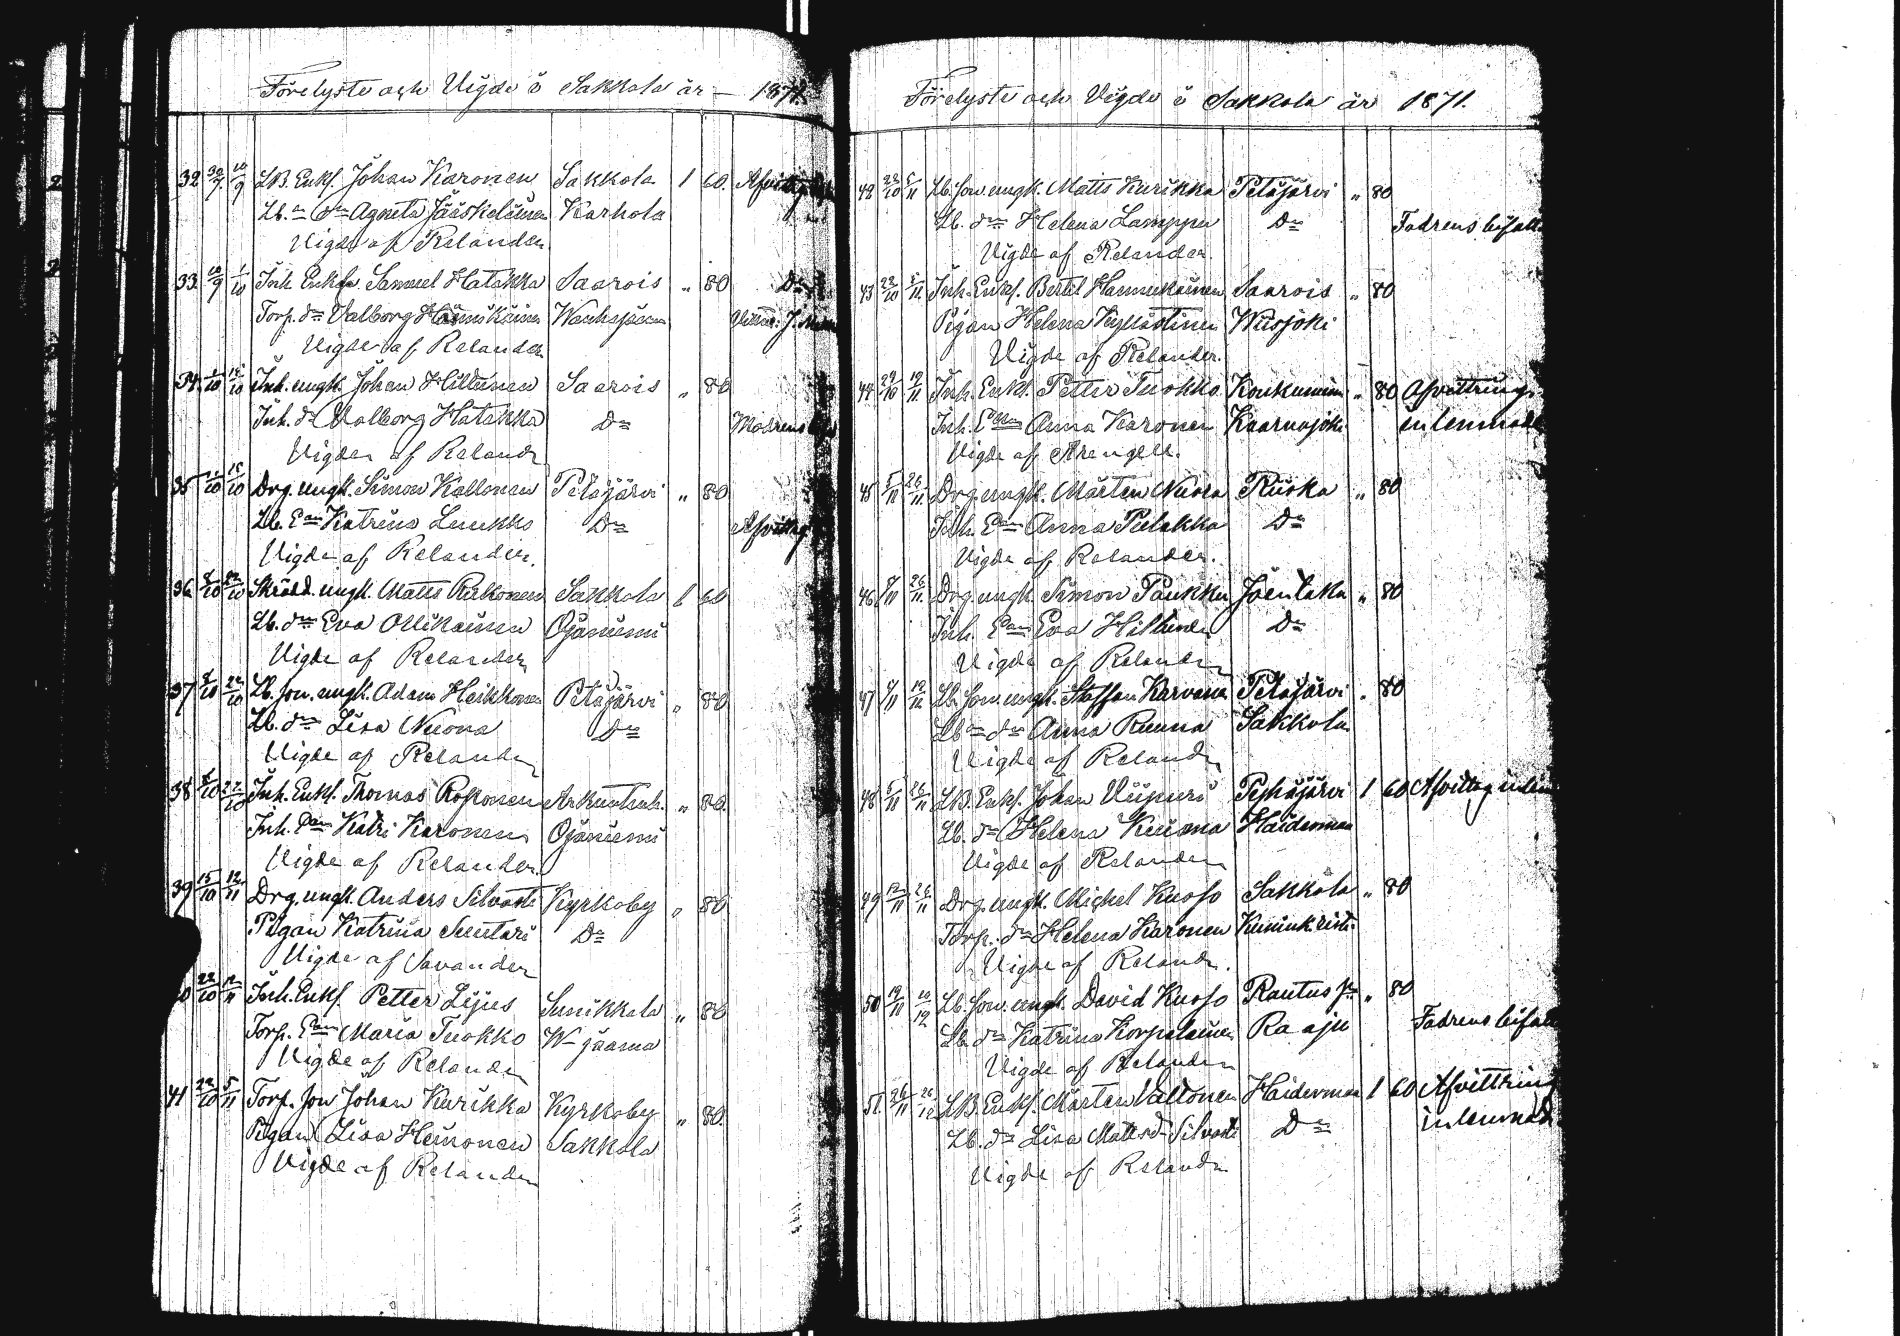 Förelyste och Vigde i Sakkola år — 1871.
32 30/7 10/9 LB. Enkl. Johan Karonen Sakkola 1 60.
Lb. dn Agneta Jääskeläinen Karhola
Vigde af Relander
33 10/9 1/10 Inh. Enkl. Samuel Hatakka Saarois „ 80 Do
Torp. dn Valborg Hannikäinen
Vigde af Relander
34. 1/10 15/10 Inh. ungk. Johan Hiltunen Saarois „ 80
Inh. dr Valborg Hatakka Do Modrens
Vigde af Reland
35 1/10 15/10 Drg. ungk. Simon Kallonen Petäjärvi „ 80
Lb. Ean Katrina Luukko Do Afvittrg
Vigde af Relander.
36 8/10 22/10 Skrädd. ungk. Matts Rirkonen Sakkola 1 60
Lb. dn Eva Ollikainen Ojaniemi
Vigde af Relander
37 8/10 22/10 Lb. son. ungk. Adam Heikkonen Petäjärvi „ 80
Lb. dn Lisa Nuora Do
Vigde af Relander
38 8/10 22/10 Inh. Enkl. Thomas Roponen „ 80.
Inh. Ean Katri Karonen Ojaniemi
Vigde af Relander.
39 15/10 12/11 Drg. ungk. Anders Silvasti Kyrkoby „ 80
Pigan Katrina Suntari Do
Vigde af Savander
22/10 12/11 Inh. Enkl. Petter Lijus Sunikkala „ 80
Torp. Ean Maria Tuokko W-jaama
Vigde af Relander
41 22/10 5/11 Torp. son Johan Kurikka Kyrkoby „ 80.
Pigan Lisa Heinonen Sakkola
Vigde af Relander
Förelyste och Vigde i Sakkola år 1871.
42 22/10 5/11 Lb. son. ungk. Matts Kurikka Petäjärvi „ 80
Lb. dn Helena Lamppu Do Fadrens bifall
Vigde af Relander.
43 22/10 5/11 Inh. Enkl. Bertil Hannukainen Saarois „ 80
Pigan Helena Kyllästinen Wiisjoki
Vigde af Relander.
44 29/10 19/11 Inh. Enkl. Petter Tuokko Konkunniemi „ 80 Afvittrings
Inh. Ekan Anna Karonen Kaarnajoki inlemnadt
Vigde af Arengell.
45 5/11 26/11 Drg. ungk. Mårten Nuora Riiska „ 80
Inh. Ean Anna Pulakka Do
Vigde af Relander.
46 5/11 26/11 Drg. ungk. Simon Paukku Joentaka „ 80
Inh. Ean Eva Hiltunen Do
Vigde af Relander
47 5/11 19/11 Lb. son. ungk. Staffan Karvanen Petäjärvi „ 80
Lb dn Anna Ruuna Sakkola
Vigde af Relander
48 5/11 26/11 LB. Enkl. Johan Viipuri Pyhäjärvi 1 60 Afvittrg inlem
Lb. dn Helena Kuisma Haiderman
Vigde af Relander
49 12/11 26/11 Drg. ungk. Michel Kuoso Sakkola „ 80
Torp. dn Helena Karonen
Vigde af Reland.
50 19/11 10/12 Lb. son. ungk. David Kuoso Rautus „ 80
Lb. dn Katrina Korpelainen Raaju Fadrens bifall
Vigde af Relander
51. 26/11 26/12 LB. Enkl. Mårten Valtonen Haiderman 1 60 Afvittring
Lb. dn Lisa Mattsdr Silvasti Do inlemnad.
Vigde af Relander